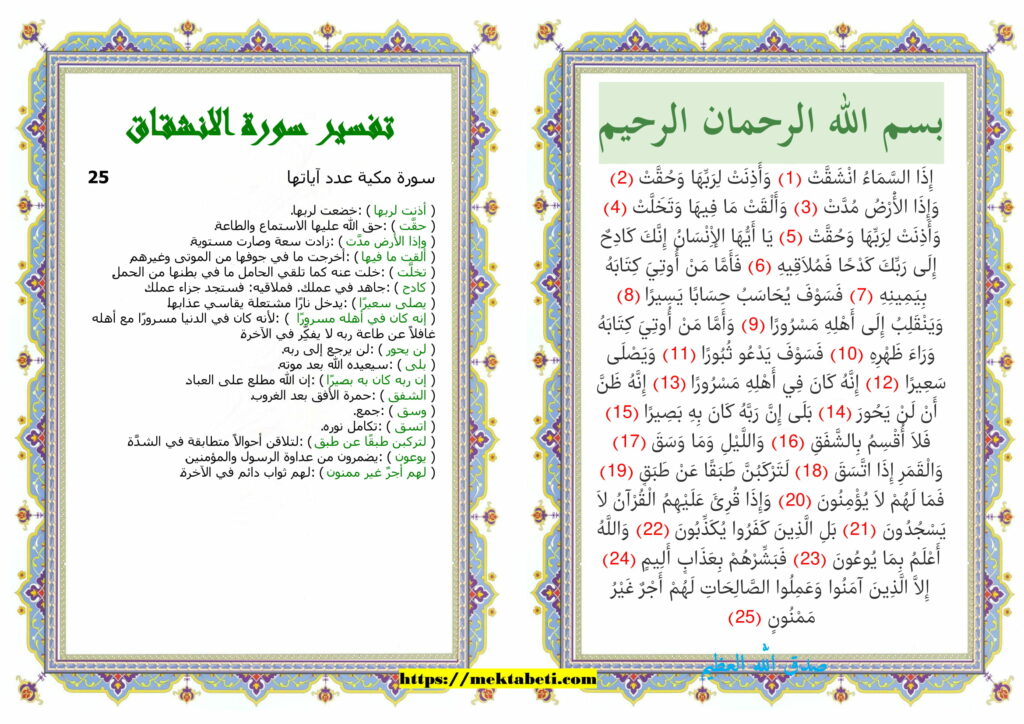 بسم الله الرحمان الرحيم
إِذَا السَّمَاءُ انْشَقَّتْ (1) وَأَذِنَتْ لِرَبِّهَا وَحُقَّتْ (2)
وَإِذَا الأَرْضُ مُدَّتْ (3) وَأَلْقَتْ مَا فِيهَا وَتَخَلَّتْ (4)
وَأَذِنَتْ لِرَبِّهَا وَحُقَّتْ (5) يَا أَيُّهَا الإِنْسَانُ إِنَّكَ كَادِحٌ
إِلَى رَبِّكَ كَدْحًا فَمُلاَقِيهِ (6) فَأَمَّا مَنْ أُوتِيَ كِتَابَهُ
بِيَمِينِهِ (7) فَسَوْفَ يُحَاسَبُ حِسَابًا يَسِيرًا (8)
وَيَنْقَلِبُ إِلَى أَهْلِهِ مَسْرُورًا (9) وَأَمَّا مَنْ أُوتِيَ كِتَابَهُ
وَرَاءَ ظَهْرِهِ (10) فَسَوْفَ يَدْعُو ثُبُورًا (11) وَيَصْلَى
سَعِيرًا (12) إِنَّهُ كَانَ فِي أَهْلِهِ مَسْرُورًا (13) إِنَّهُ ظَنَّ
أَنْ لَنْ يَحُورَ (14) بَلَى إِنَّ رَبَّهُ كَانَ بِهِ بَصِيرًا (15)
فَلاَ أُقْسِمُ بِالشَّفَقِ (16) وَاللَّيْلِ وَمَا وَسَقَ (17)
وَالْقَمَرِ إِذَا اتَّسَقَ (18) لَتَرْكَبُنَّ طَبَقًا عَنْ طَبَقٍ (19)
فَمَا لَهُمْ لاَ يُؤْمِنُونَ (20) وَإِذَا قُرِئَ عَلَيْهِمُ الْقُرْآنُ لاَ
يَسْجُدُونَ (21) بَلِ الَّذِينَ كَفَرُوا يُكَذِّبُونَ (22) وَاللَّهُ
أَعْلَمُ بِمَا يُوعُونَ (23) فَبَشِّرْهُمْ بِعَذَابٍ أَلِيمٍ (24)
إِلاَّ الَّذِينَ آمَنُوا وَعَمِلُوا الصَّالِحَاتِ لَهُمْ أَجْرٌ غَيْرُ
مَمْنُونٍ (25)
صدق الله العظيم
تفسير سورة الانشقاق
سورة مكية عدد آياتها 25
( أذنت لربها ) :خضعت لربها.
( حقَّت ) :حق الله عليها الاستماع والطاعة.
( وإذا الأرض مدَّت ) :زادت سعة وصارت مستوية.
( ألقت ما فيها ) :أخرجت ما في جوفها من الموتى وغيرهم
( تخلَّت ) :خلت عنه كما تلقي الحامل ما في بطنها من الحمل
( كادح ) :جاهد في عملك. فملاقيه: فستجد جزاء عملك
( يصلى سعيرًا ) :يدخل نارًا مشتعلة يقاسي عذابها.
( إنه كان في أهله مسرورًا ) :لأنه كان في الدنيا مسرورًا مع أهله
غافلاً عن طاعة ربه لا يفكِّر في الآخرة
( لن يحور ) :لن يرجع إلى ربه.
( بلى ) :سيعيده الله بعد موته.
( إن ربه كان به بصيرًا ) :إن الله مطلع على العباد
( الشفق ) :حمرة الأفق بعد الغروب.
( وسق ) :جمع.
( اتسق ) :تكامل نوره.
( لتركبن طبقًا عن طبق ) :لتلاقن أحوالاً متطابقة في الشدَّة
( يوعون ) :يضمرون من عداوة الرسول والمؤمنين
( لهم أجرٌ غير ممنون ) :لهم ثواب دائم في الآخرة.
https://mektabeti.com